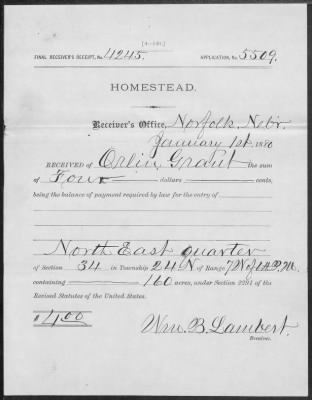 FINAL RECEIVER'S RECEIPT, No. 4245. APPLICATION, No. 5509.
HOMESTEAD.
Receiver's Office, Norfolk, Nebr.
January 1st 1880
RECEIVED OF Orlin Grant the sum
of Four dollars cents,
being the balance of payment required by law for the entry of
North East quarter
of Section 34 in Township 24 N of Range 7 W of 6th P.M.
containing 160 acres, under Section 2291 of the
Revised Statutes of the United States.
$4.00
Wm. B. Lambert.
Receiver.